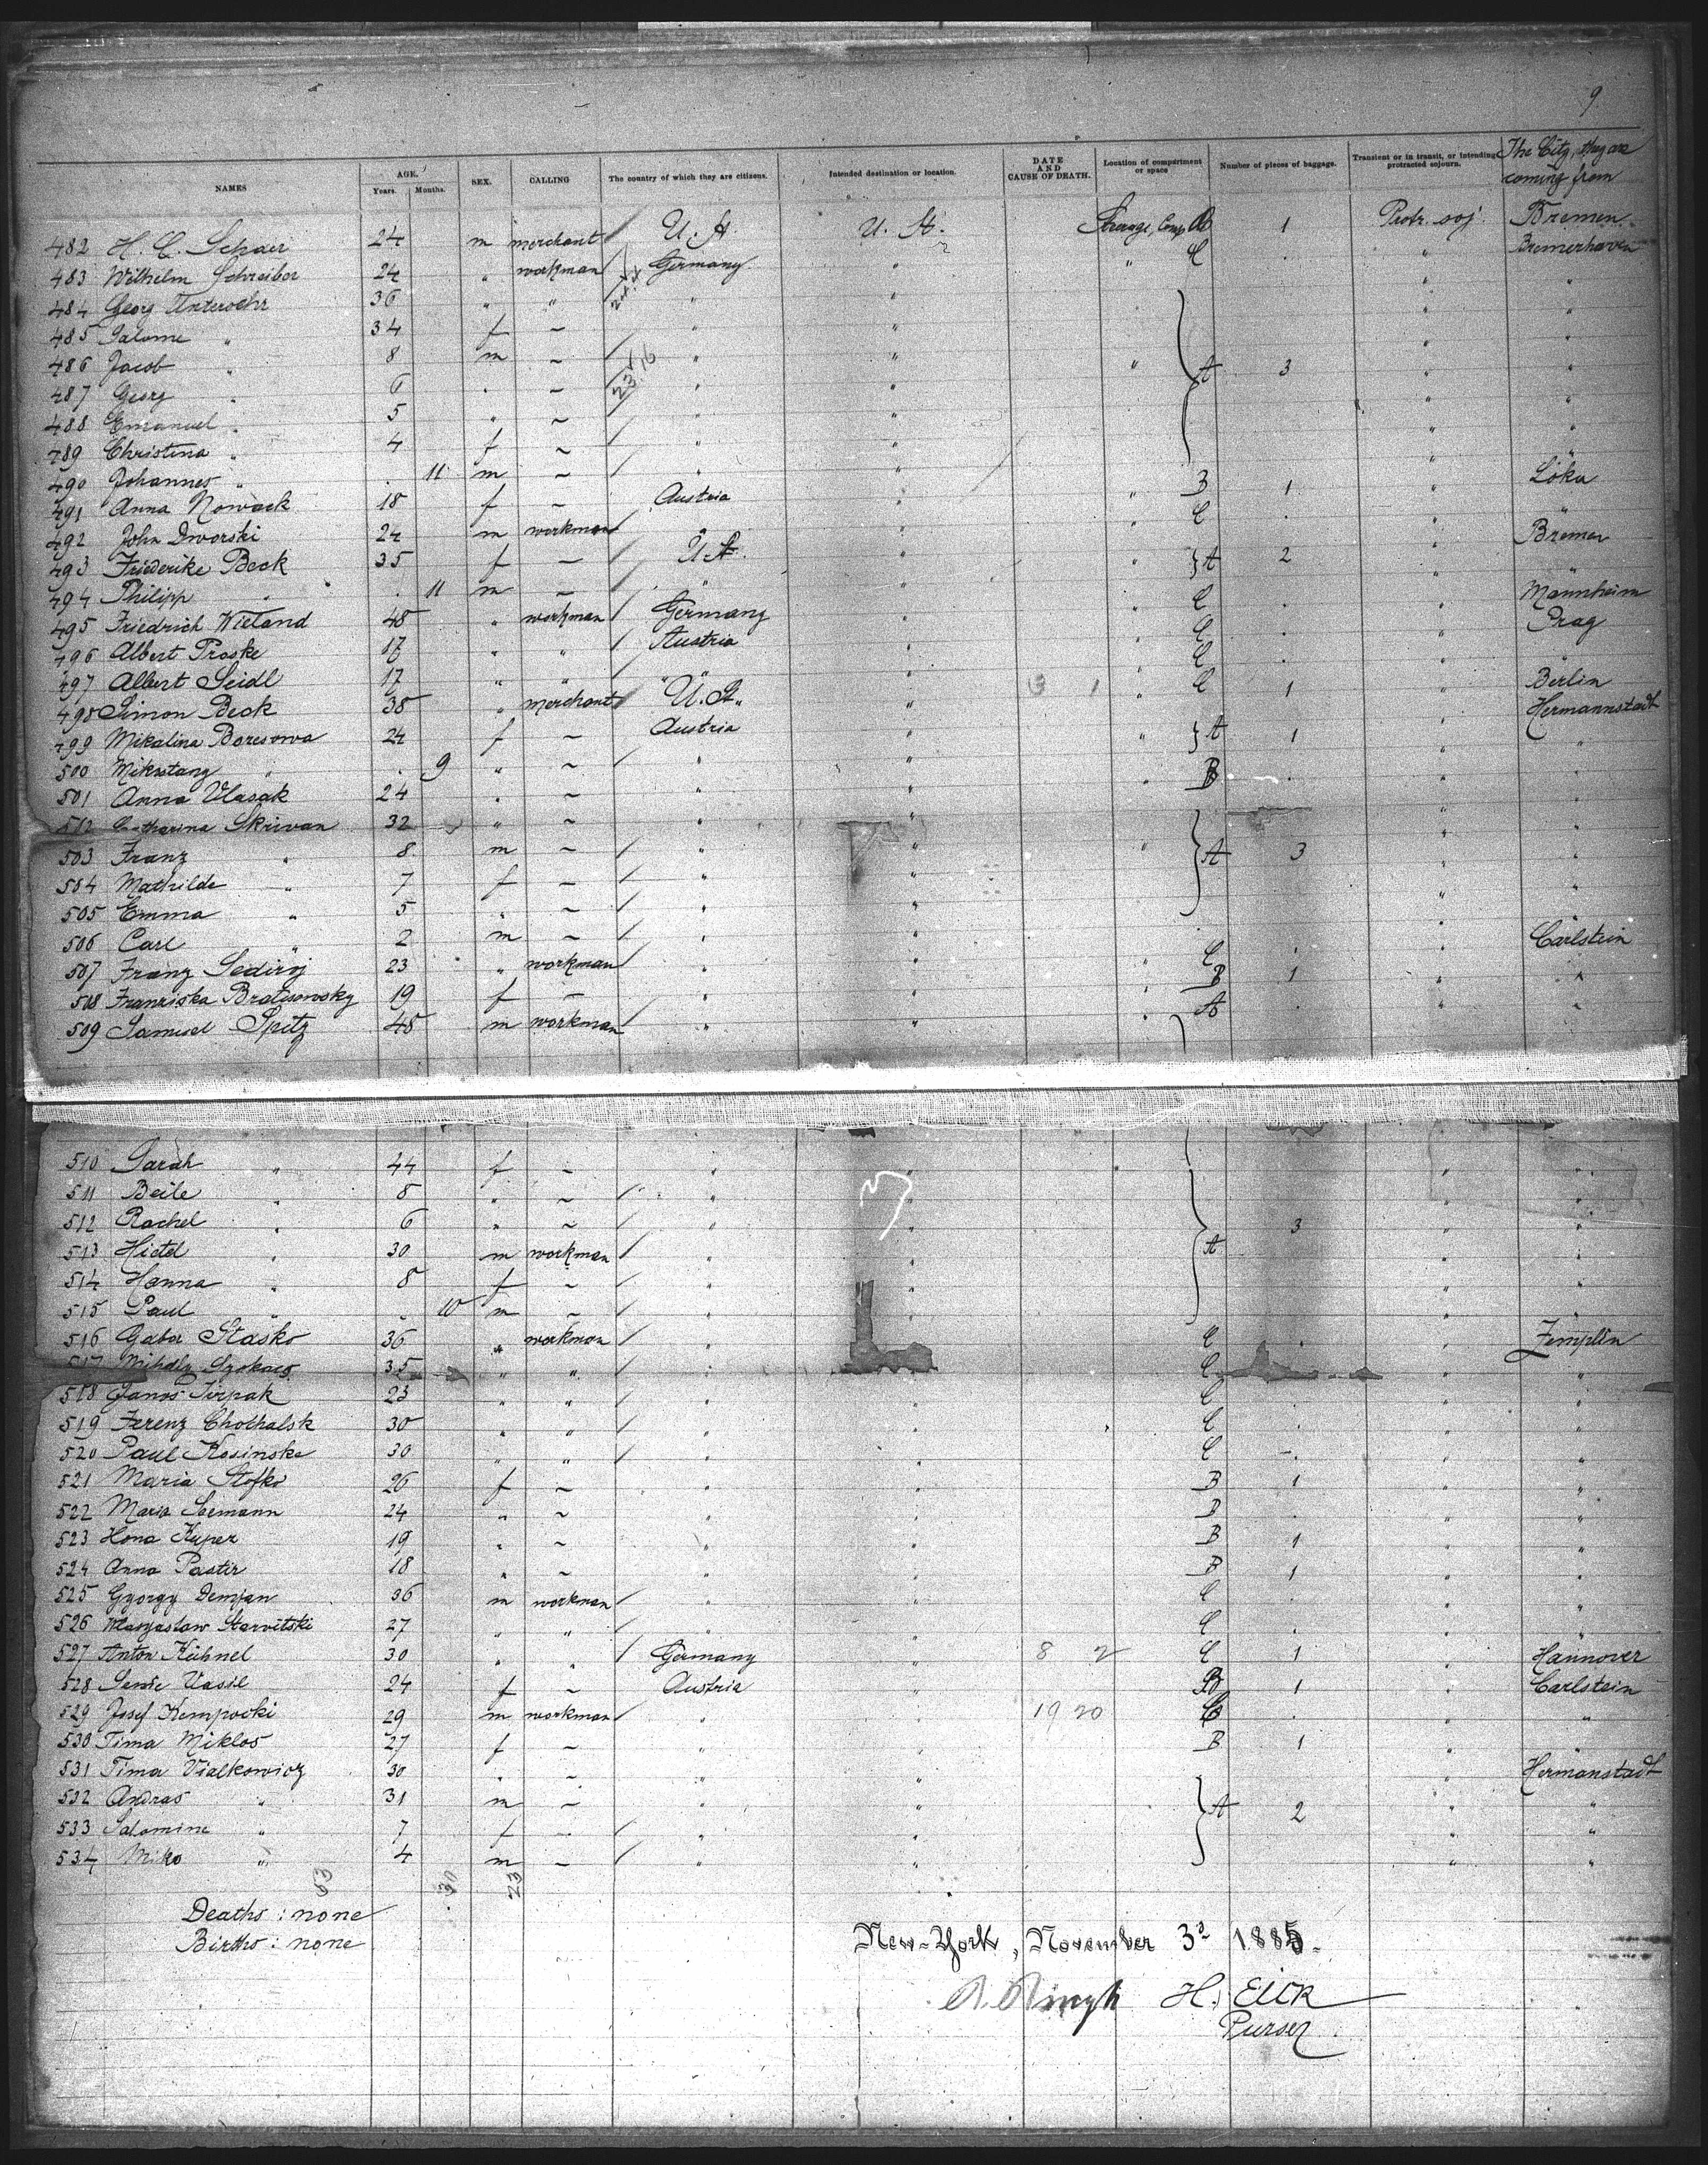 9
NAMES AGE. Years. Months. SEX. CALLING The country of which they are citizens. Intended destination or location. DATE AND CAUSE OF DEATH. Location of compartment or space Number of pieces of baggage. Transient or in transit, or intending protracted sojourn. The City, they are coming from
482 H. C. Schaer 24 m merchant / U. St. U. St. Steerage, Comp 1 Protr. soj. Bremen
483 Wilhelm Schreiber 24 " workman / Germany " " C . " Bremerhaven
484 Georg Unterwehr 36 " " " " " "
485 Salome " 34 f ~ " " " "
486 Jacob " 8 m ~ / " " " A 3 " "
487 Georg " 6 " ~ / " " " "
488 Emanuel " 5 " ~ / " " " "
489 Christina " 4 f ~ / " " " "
490 Johannes " . 11 m ~ / " " " "
491 Anna Nowack 18 f ~ Austria " " B 1 " Löka
492 John Dworski 24 m workman / " " C . " "
493 Friederike Beck 35 f — / U. St. " A 2 " Bremen
494 Philipp " . 11 m ~ / " " " "
495 Friedrich Wieland 48 " workman / Germany " " C . " Mannheim
496 Albert Proske 17 " " / Austria " " C . " Prag
497 Albert Seidl 17 " " / " " " C . " "
498 Simon Beck 38 " merchant / U. St. " " C 1 " Berlin
499 Mikalina Boresowa 24 f ~ Austria " " A 1 " Hermannstadt
500 " . 9 " ~ / " " " "
501 Anna Vlasak 24 " ~ " " " B . " "
502 Catharina Skrivan 32 " ~ " " " "
503 Franz " 8 m ~ / " " " A 3 " "
504 Mathilde " 7 f ~ / " " " "
505 Emma " 5 " ~ / " " " "
506 Carl " 2 m ~ / " " " "
507 Franz Sediroj 23 " workman / " " " C . " Carlstein
508 Franziska Bratesowsky 19 f — " " " B 1 " "
509 Samuel Spitz 45 m workman / " " " A . " "
510 Sarah " 44 f ~ " " " "
511 Beile " 8 " ~ / " " " "
512 Rachel " 6 " ~ / " " 3 " "
513 Hietel " 30 m workman / " " A " "
514 Hanna " 8 f ~ / " " " "
515 Paul " . 10 m ~ / " " " "
516 Gabor Stasko 36 " workman / " " C . " Zemplin
517 Mihaly Szokacs 35 " " / " " C " "
518 Janos Tirpak 23 " " / " " C . " "
519 Ferenz Cholhalsk 30 " " / " " C . " "
520 Paul Kosinska 30 " " / " " C - " "
521 Maria Stofko 26 f ~ " " B 1 " "
522 Maria Seemann 24 " ~ " " B . " "
523 Ilona Kuper 19 " ~ " " B 1 " "
524 Anna Pastir 18 " ~ " " B 1 " "
525 Gyorgy Demjan 36 m workman / " " C . " "
526 Starvitski 27 " " / " " C . " "
527 Anton Kühnel 30 " " / Germany " 8 2 C 1 " Hannover
528 Vasil 24 f ~ Austria " B 1 " Carlstein
529 Josef Kempocki 29 m workman / " " 19 20 C . " "
530 Tima Miklos 27 f ~ " " B 1 " "
531 Tima Vialkowicz 30 " ~ " " " Hermanstadt
532 Andras " 31 m ~ " " A 2 " "
533 Salomine " 7 f ~ / " " " "
534 Miko " 4 m ~ / " " " "
53 30 23
Deaths: none
Births: none
New-York, November 3d 1885.
H. Eick
Purser